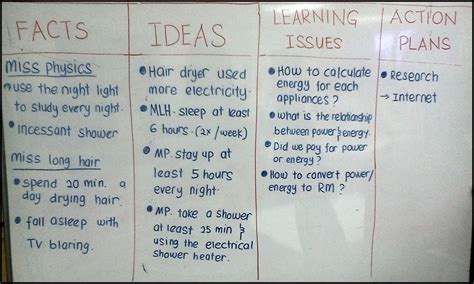 FACTS
Miss Physics
• use the night light
to study every night.
• Incessant shower
Miss long hair
• spend 20 min. a
day drying hair.
• fall asleep with
TV blaring.
IDEAS
• Hair dryer used
more electricity.
• MLH. sleep at least
6 hours. (2x /week)
• MP. stay up at
least 5 hours
every night.
• MP. take a shower
at least 25 min &
using the electrical
shower heater.
LEARNING
ISSUES
• How to calculate
energy for each
appliances?
• what is the relationship
between power & energy.
• Did we pay for power
or energy?
• How to convert power/
energy to RM?
ACTION
PLANS
• Research
→ Internet